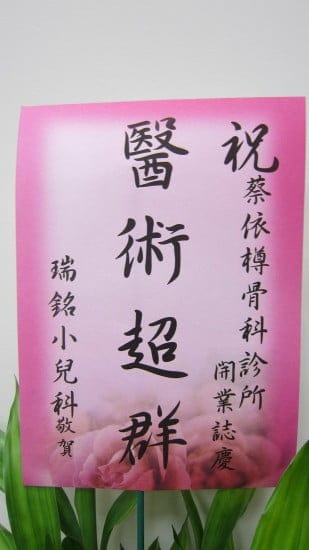 祝蔡依樽骨科診所
開業誌慶
醫術超群
瑞銘小兒科敬賀